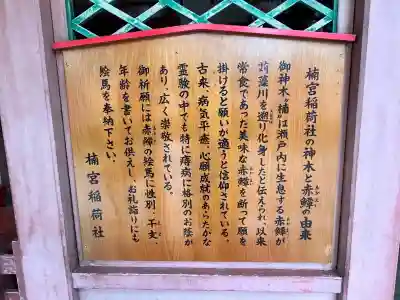 楠宮稲荷社の神木と赤鱏の由来
御神木“楠”は瀬戸内に生息する赤鱏が
菖蒲川を遡り化身したと伝えられ、以来
常食であった美味な赤鱏を断って願を
掛けると願いが適うと信仰されている。
古来、病気平癒、心願成就のあらたかな
霊験の中でも特に痔病に格別のお蔭が
あり、広く崇敬されている。
御祈願には赤鱏の絵馬に性別、干支、
年齢を書いてお供えし、お礼詣りにも
絵馬を奉納下さい。
楠宮稲荷社